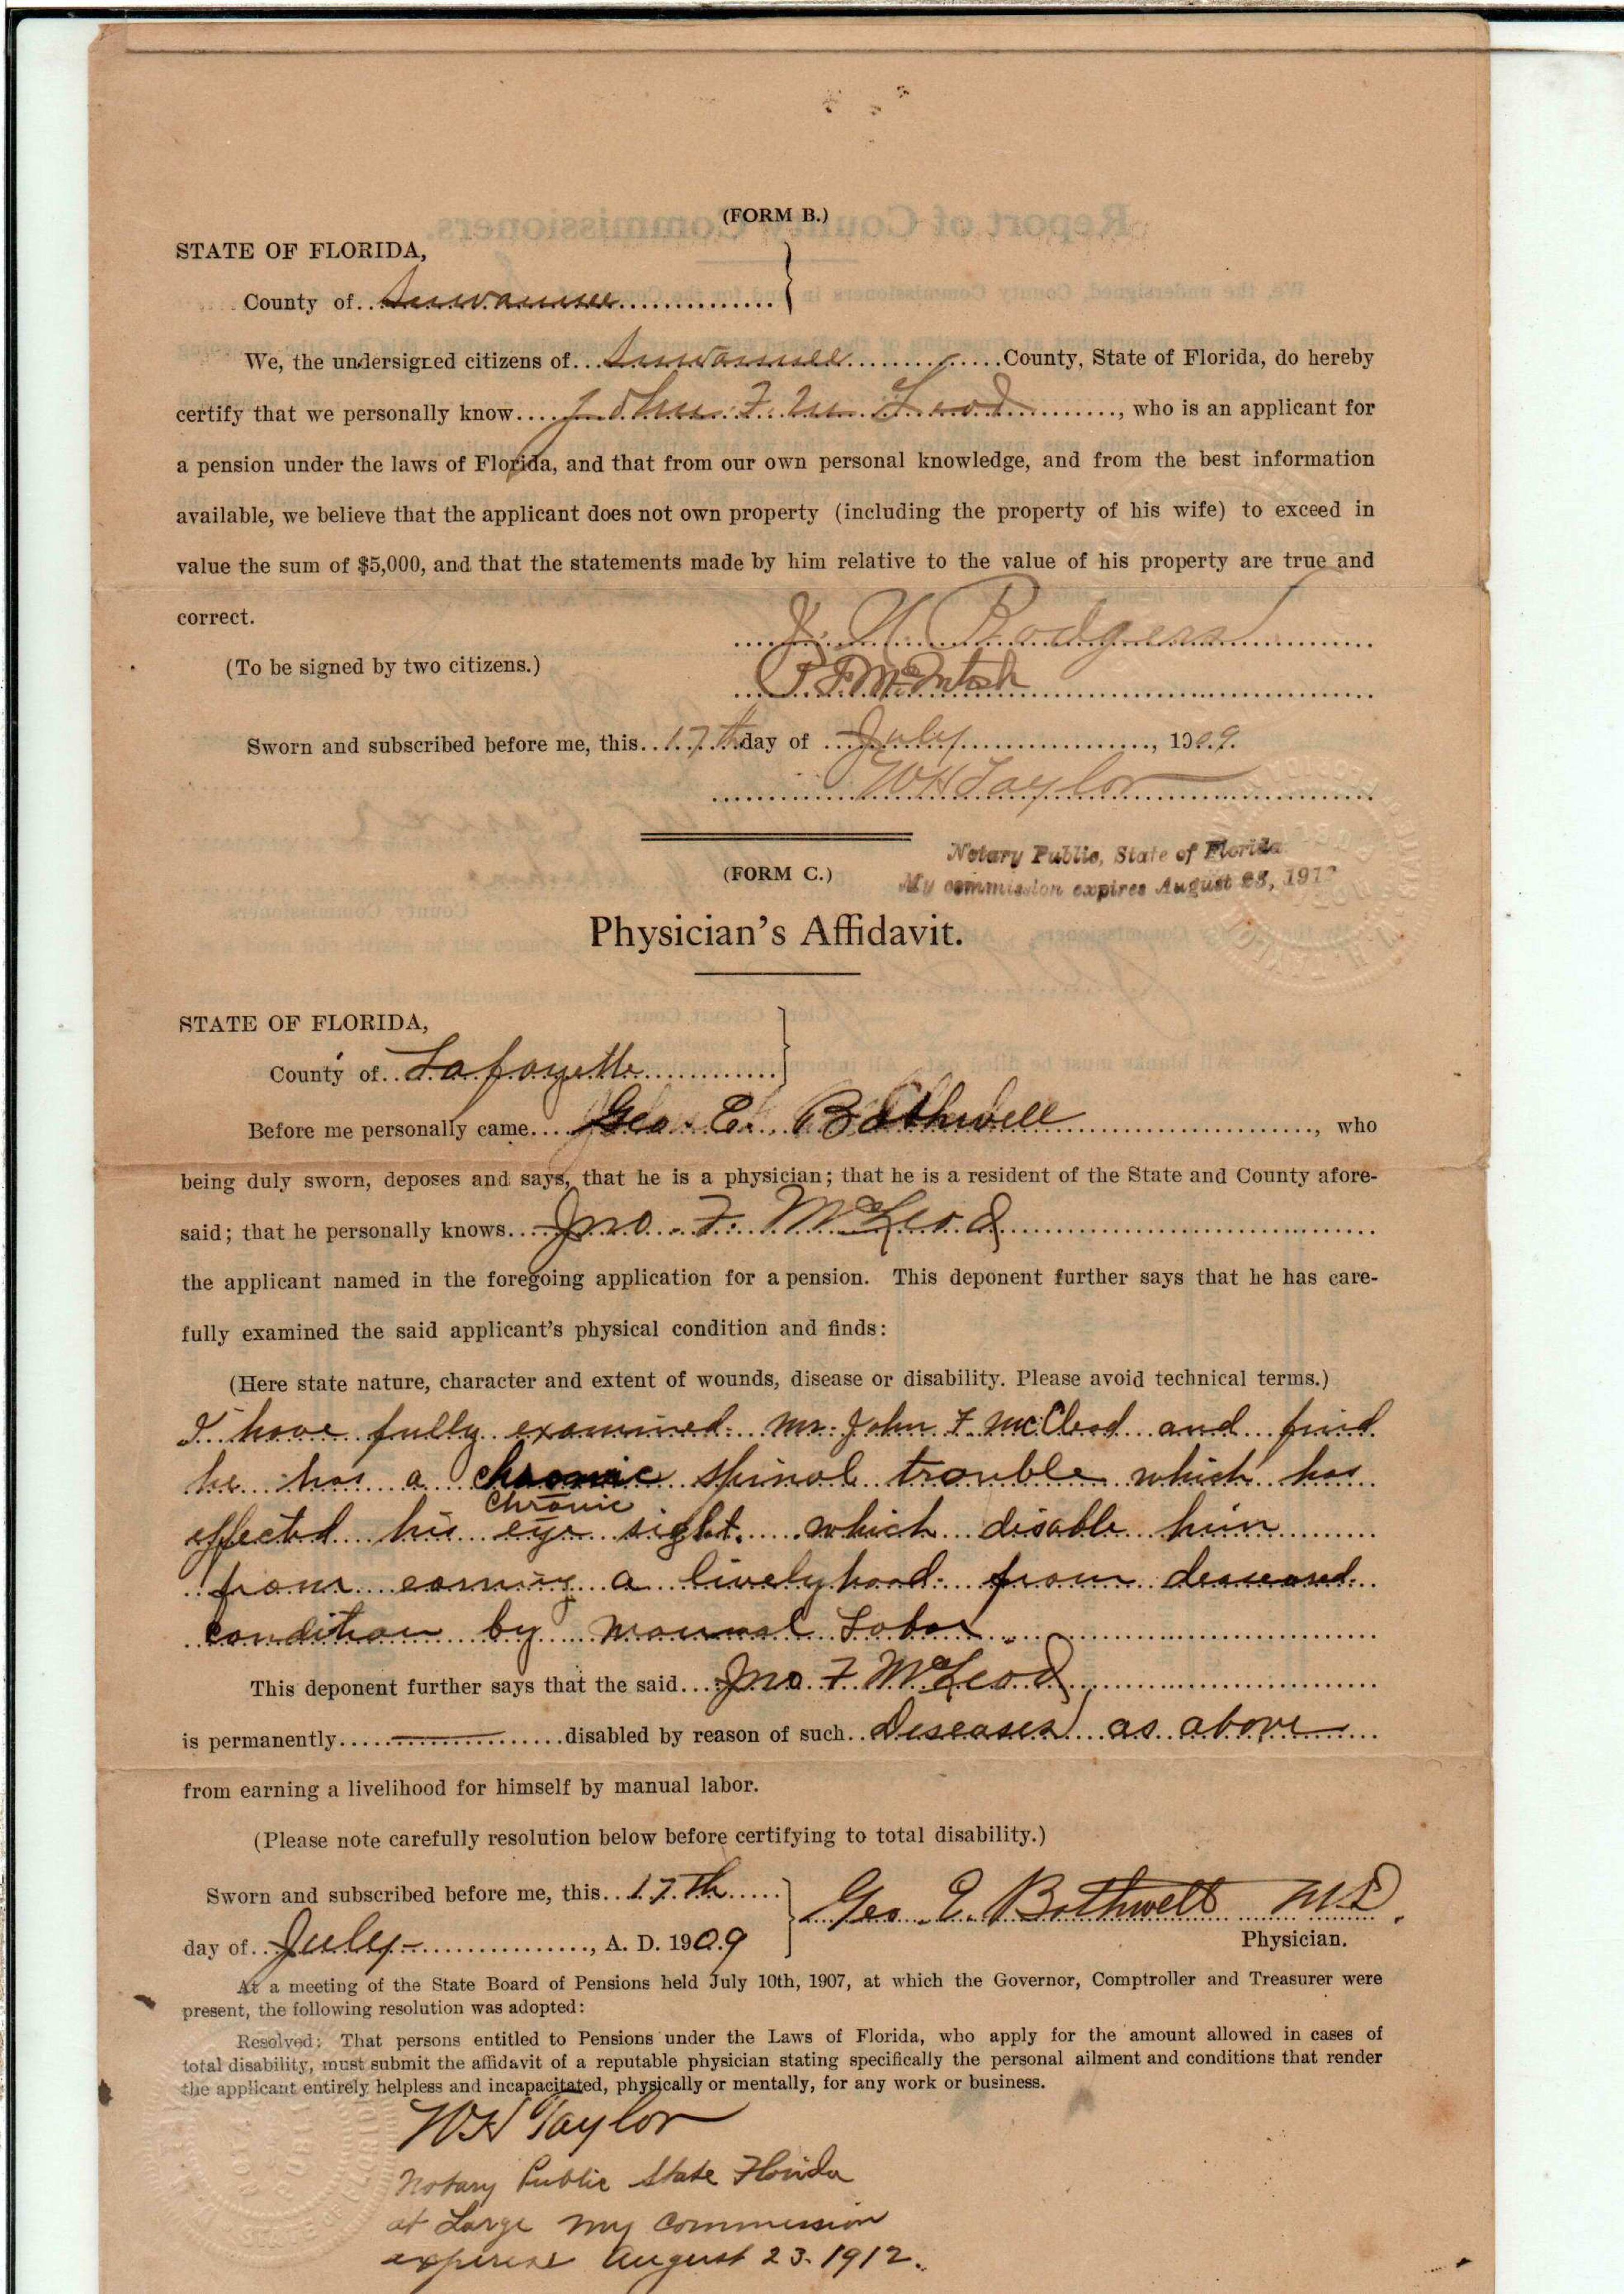 (FORM B.)
STATE OF FLORIDA,
County of Suwannee
We, the undersigned citizens of Suwannee County, State of Florida, do hereby
certify that we personally know John F. McLeod, who is an applicant for
a pension under the laws of Florida, and that from our own personal knowledge, and from the best information
available, we believe that the applicant does not own property (including the property of his wife) to exceed in
value the sum of $5,000, and that the statements made by him relative to the value of his property are true and
correct.
Rodgers
(To be signed by two citizens.)
P F McIntosh
Sworn and subscribed before me, this 17th day of July, 1909.
WH Taylor
Notary Public, State of Florida
My commission expires August 23, 1912
(FORM C.)
Physician's Affidavit.
STATE OF FLORIDA,
County of Lafayette
Before me personally came Geo. E. Bothwell, who
being duly sworn, deposes and says, that he is a physician; that he is a resident of the State and County afore-
said; that he personally knows Jno. F. McLeod
the applicant named in the foregoing application for a pension. This deponent further says that he has care-
fully examined the said applicant's physical condition and finds:
(Here state nature, character and extent of wounds, disease or disability. Please avoid technical terms.)
I have fully examined Mr. John F McCleod and find
he has a chronic spinal trouble which has
Chronic
effected his eye sight. which disable him
from earning a livelyhood from deseased
condition by manual Labor.
This deponent further says that the said Jno F McLeod
is permanently disabled by reason of such Deseases as above
from earning a livelihood for himself by manual labor.
(Please note carefully resolution below before certifying to total disability.)
Sworn and subscribed before me, this 17th
day of July, A. D. 1909
Geo. E. Bothwell M.D.
Physician.
At a meeting of the State Board of Pensions held July 10th, 1907, at which the Governor, Comptroller and Treasurer were
present, the following resolution was adopted:
Resolved: That persons entitled to Pensions under the Laws of Florida, who apply for the amount allowed in cases of
total disability, must submit the affidavit of a reputable physician stating specifically the personal ailment and conditions that render
the applicant entirely helpless and incapacitated, physically or mentally, for any work or business.
WH Taylor
Notary Public State Florida
at Large my Commission
expires August 23. 1912.